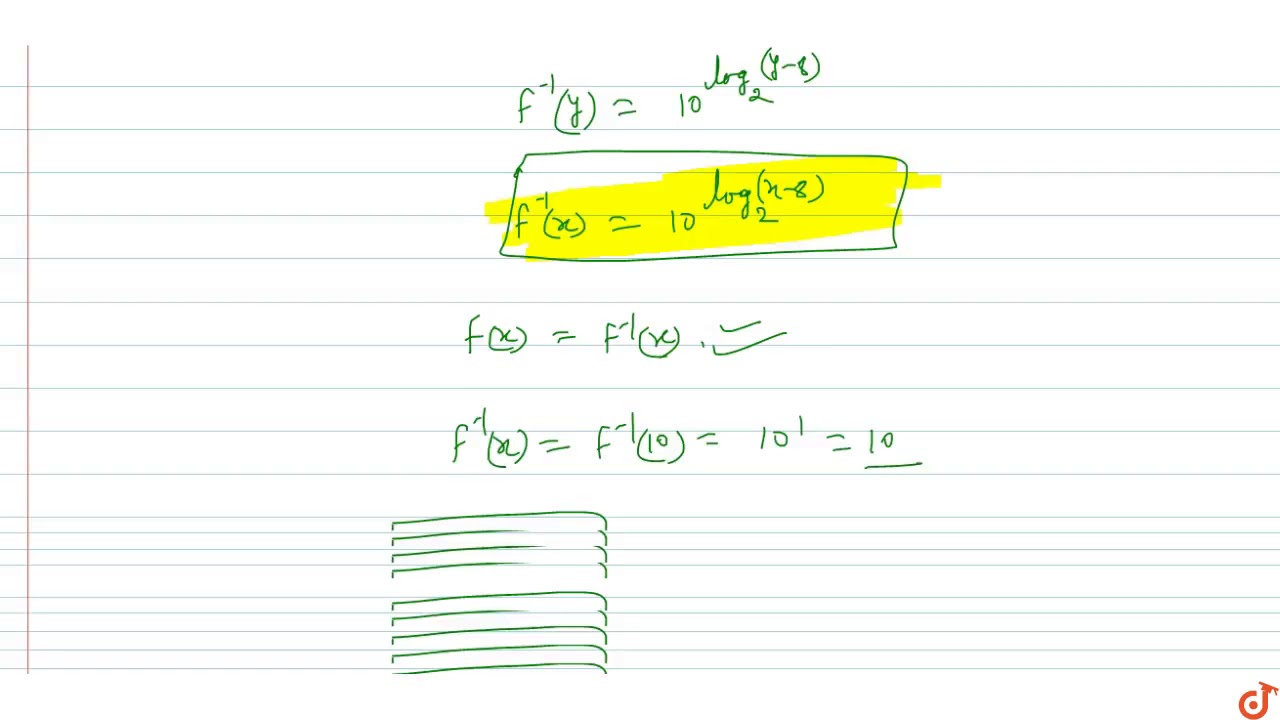 f⁻¹(y) = 10^log₂(y-8)
f⁻¹(x) = 10^log₂(x-8)
f(x) = f⁻¹(x).
f⁻¹(x) = f⁻¹(10) = 10¹ = 10